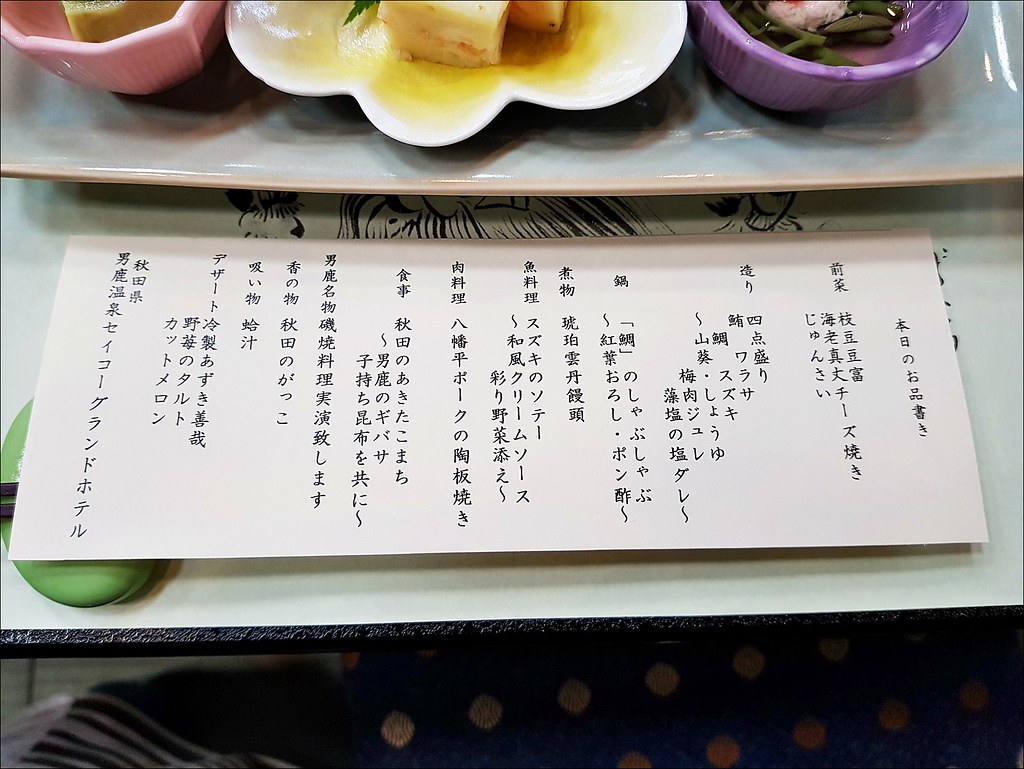 本日のお品書き
前菜
枝豆豆富
海老真丈チーズ焼き
じゅんさい
造り
四点盛り
鮪 ワラサ
鯛 スズキ
~山葵・しょうゆ
梅肉ジュレ
藻塩の塩ダレ~
鍋
「鯛」のしゃぶしゃぶ
~紅葉おろし・ポン酢~
煮物 琥珀雲丹饅頭
魚料理 スズキのソテー
~和風クリームソース
彩り野菜添え~
肉料理 八幡平ポークの陶板焼き
食事 秋田のあきたこまち
~男鹿のギバサ
子持ち昆布を共に~
男鹿名物磯焼料理実演致します
香の物 秋田のがっこ
吸い物 蛤汁
デザート 冷製あずき善哉
野苺のタルト
カットメロン
秋田県
男鹿温泉セイコーグランドホテル